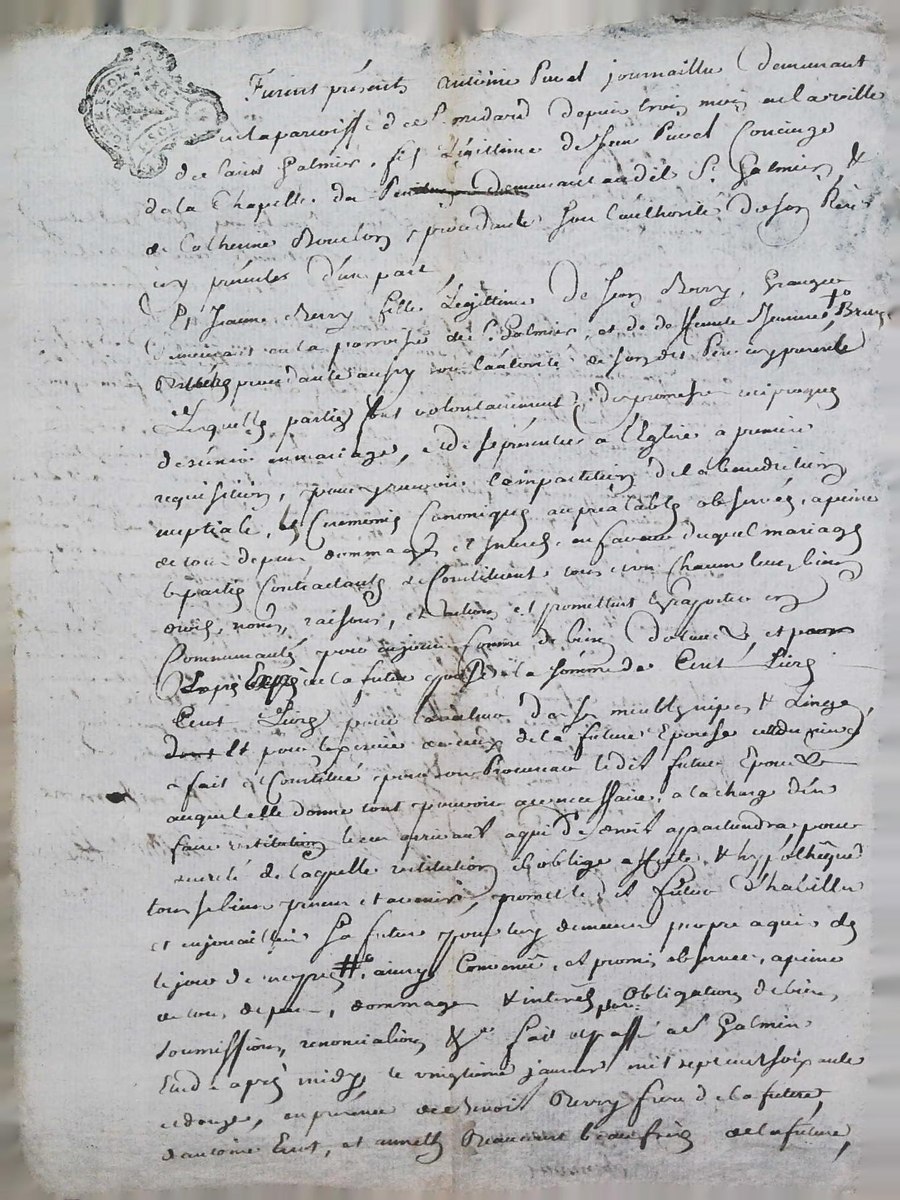 Furent présents antoine Puvel journaillier demeurant
en la paroisse de St medard depuis trois mois en la ville
de Saint Galmier, fils Légittime de Jean Puvel Concierge
de la Chapelle des demeurant audit St Galmier, &
de Catherine procedante sous l'authorité de son Père
icy présent d'une part
Et Jeanne Berry fille Légittime de Jean Berry, Granger
demeurant en la parroisse de St Galmier, et de Jeanne
procedante aussy sous l'autorité de son dit Père icy présent
Lesquelles parties font volontairement des promesses réciproques
de s'unir en mariage, et de se présenter à l'Eglise a première
requisition, pour recevoir l'impartition de la bénédiction
nuptiale, les Ceremonies Canoniques au préalable observées, a peine
de tous depens dommages et interets en faveur duquel mariage
les parties Contractantes se Constituent tous et un Chacun leurs biens
droits, noms, raisons, et actions et promettent les rapporter en
Communauté pour en jouir comme de biens dotaux et
la future épouse de la somme de Cent Livres
Cent Livres pour la valeur de ses meubles nipes & Linge,
& pour l'exercice de ceux de la future Epouse
a fait et Constitué pour son Procureur ledit futur Epoux
auquel elle donne tout pouvoir a ce necessaire, a la charge d'en
faire restitution le cas arrivant a qui de droit appartiendra pour
sureté de laquelle restitution il oblige affecte, & hypothèque
tous ses biens presents et avenir, promet ledit futur d'habiller
et enjoailler sa future pour luy demeurer propre a quis dès
le jour de ainsy Convenu, et promis observer, a peine
de tous depens, dommages & interets par Obligation de biens,
soumissions, renonciations &c fait et passé a St Galmier
Etude après midy le vingtieme janvier mil sept cent soixante
et douze, en présence de Benoit Berry frere de la future,
d'antoine et beau frère de la future,